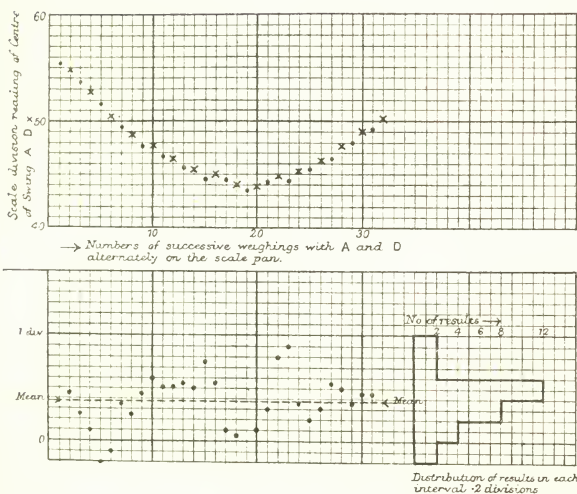 Scale division reading of Centre
of Swing A · D ×
60
50
40
10
20
30
→ Numbers of successive weighings with A and D
alternately on the scale pan.
1 div
Mean
0
Mean
No of results →
2 4 6 8 12
Distribution of results in each
interval ·2 divisions